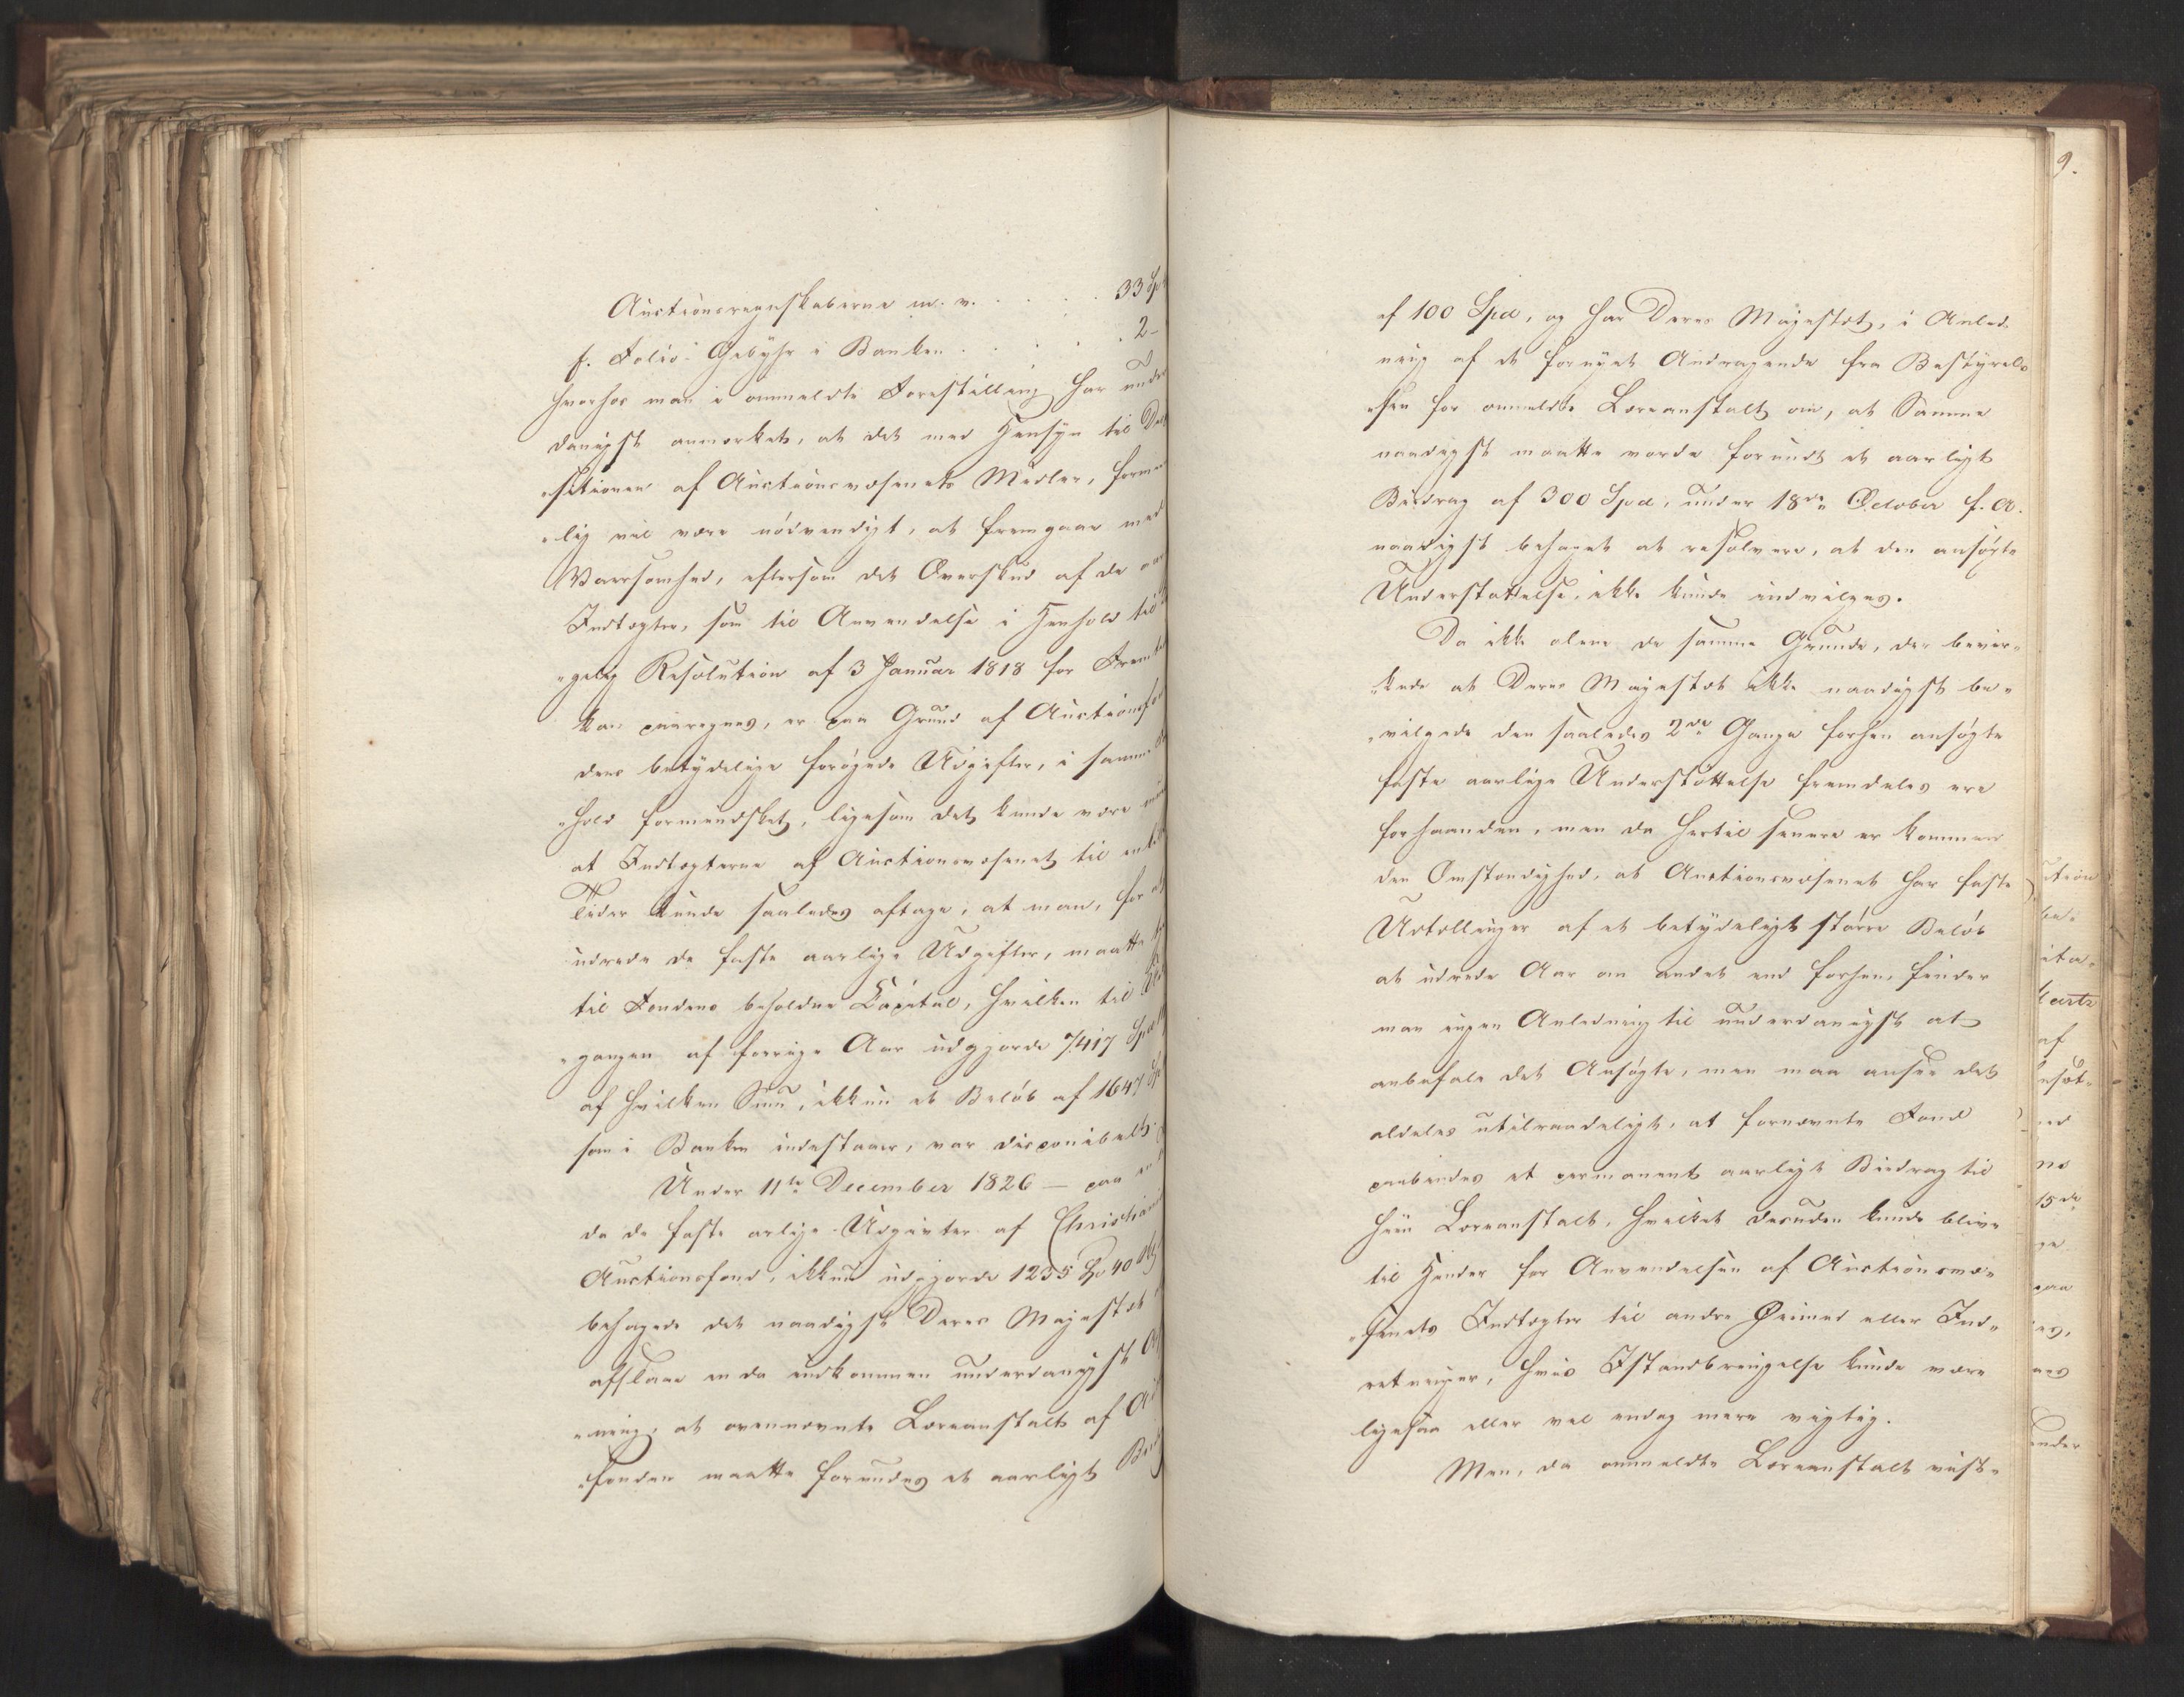 Auctionsregnskaberne m. v. . . . . . 33 Spd
f. Folio-Gebyhr i Banken . . . . . . 2 –
hvorhos man i ommeldte Forestilling har under
danigst anmærket, at det med Hensyn til Dis
"sitionen af Auctionsvæsenets Midler, forme
"lig vil være nödvendigt, at fremgaae med
Varsomhed, eftersom det Overskud af de
Indtægter, som til Anvendelse i Henhold til
"gelig Resolution af 3 Januar 1818 for Fremti
kan paaregnes, er paa Grund af Auctionsfon
dens betydelige forøgede Udgifter, i samme
"hold formindsket, ligesom det kunde være
at Indtægterne af Auctionsvæsenet til
Tider kunde saaledes aftage, at man, for at
udrede de faste aarlige Udgifter, maatte
til Fondens beholdne Capital, hvilken til
"gangen af forrige Aar udgjorde 7417 Spd
af hvilken Sum, ikkun et Belöb af 1647 Spd
som i Banken indestaaer, var disponibelt.
Under 11te December 1826 – paa en
da de faste arlige Udgivter af Christiania
Auctionsfond, ikkun udgjorde 1235 Sp 40
behagede det naadigst Deres Majestæt
afslaae en da indkommen underdanigst
"ning, at ovennævnte Læreanstalt af
"fonden maatte forundes et aarligt
af 100 Spd, og har Deres Majestæt, i Anled-
ning af et fornyet Andragende fra Bestyrel-
"sen for ommeldte Læreanstalt om, at Samme
naadigst maatte vorde forundt et aarligt
Bidrag af 300 Spd, under 18de October f. A.
naadigst behaget at resolvere, at den ansøgte
Understøttelse, ikke kunde indvilges.
Da ikke alene de samme Grunde, der bevir-
"kede at Deres Majestæt ikke naadigst be-
"vilgede den saaledes 2de Gange forhen ansøgte
faste aarlige Understøttelse fremdeles ere
forhaanden, men da hertil senere er kommen
den Omstændighed, at Auctionsvæsenet har faste
Udtællinger af et betydeligt større Beløb
at udrede Aar om andet end forhen, finder
man ingen Anledning til underdanigst at
anbefale det Ansøgte, men maa ansee det
aldeles utilraadeligt, at fornævnte Fond
paabindes et permanent aarligt Bidrag til
hiin Læreanstalt, hvilket desuden kunde blive
til Hinder for Anvendelsen af Auctionsvæ-
"senets Indtægter til andre Øiemed eller Ind-
retninger, hvis Istandbringelse kunde være
ligesaa eller vel endog mere vigtig.
Men, da ommeldte Læreanstalt vist-
9.